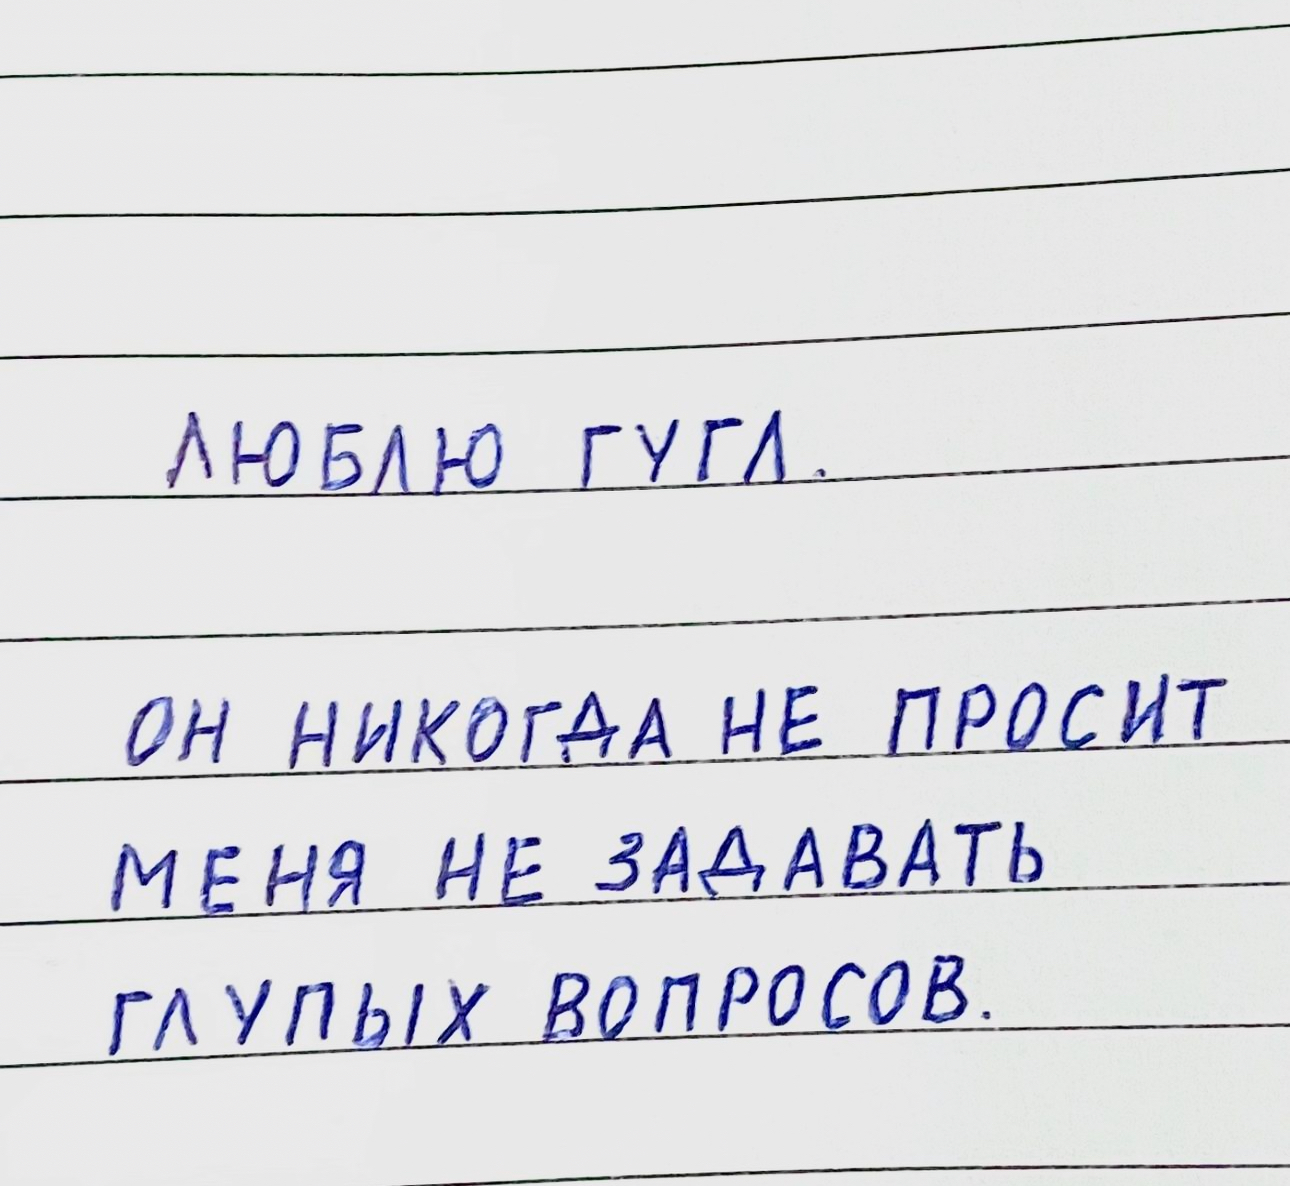 ЛЮБЛЮ ГУГЛ.
ОН НИКОГДА НЕ ПРОСИТ
МЕНЯ НЕ ЗАДАВАТЬ
ГЛУПЫХ ВОПРОСОВ.